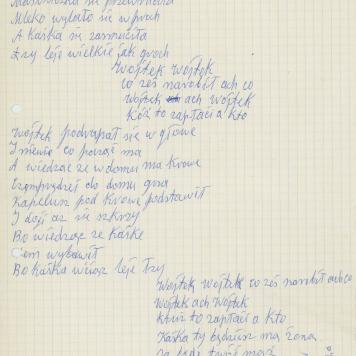 się przewróciła
Mleko wylało się w proch
A Kaśka się zasmuciła
Łzy leje wielkie jak groch
Wojtek Wojtek
co żeś narobił ach co
Wojtek ach Wojtek
Któż to zapłaci a kto
Wojtek podrapał się w głowe
I nie co począć ma
A wiedząc ze w domu ma krowe
do domu gna
Kapelusz pod krowe podstawił
I doji aż się skrzy
Bo wiedząc ze Kaśke
wybawił
Bo Kaśka wciąż leje łzy
Wojtek Wojtek co żeś narobił ach co
Wojtek ach Wojtek
któż to zapłaci a kto
Kaśka ty będziesz ma żona